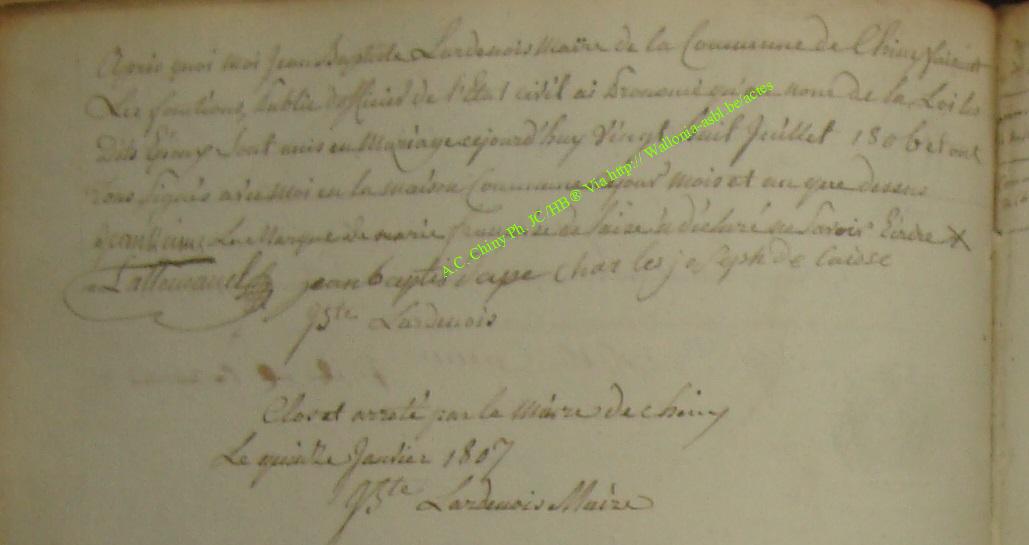 Après quoi moi Jean Baptiste Lardenois Maire de la Commune de Chiny faisant
Les fonctions, Public d'officier de l'Etat civil ai Prononcé qu'au nom de la Loi les
Dits Epoux Sont unis en Mariage cejourd'huy Vingt huit Juillet 1806 et ont
tous Signés avec moi en la maison Commune jour mois et an que dessus
La Marque de marie declaré ne Savoir Ecrire X
Lallemand jean baptis charles joseph de laisse
JBte Lardenois
Clos et arreté par le Maire de chiny
Le quinze Janvier 1807
JBte Lardenois Maire
A.C. Chiny Ph. JC/HB® Via http:// Wallonia-asbl.be/actes